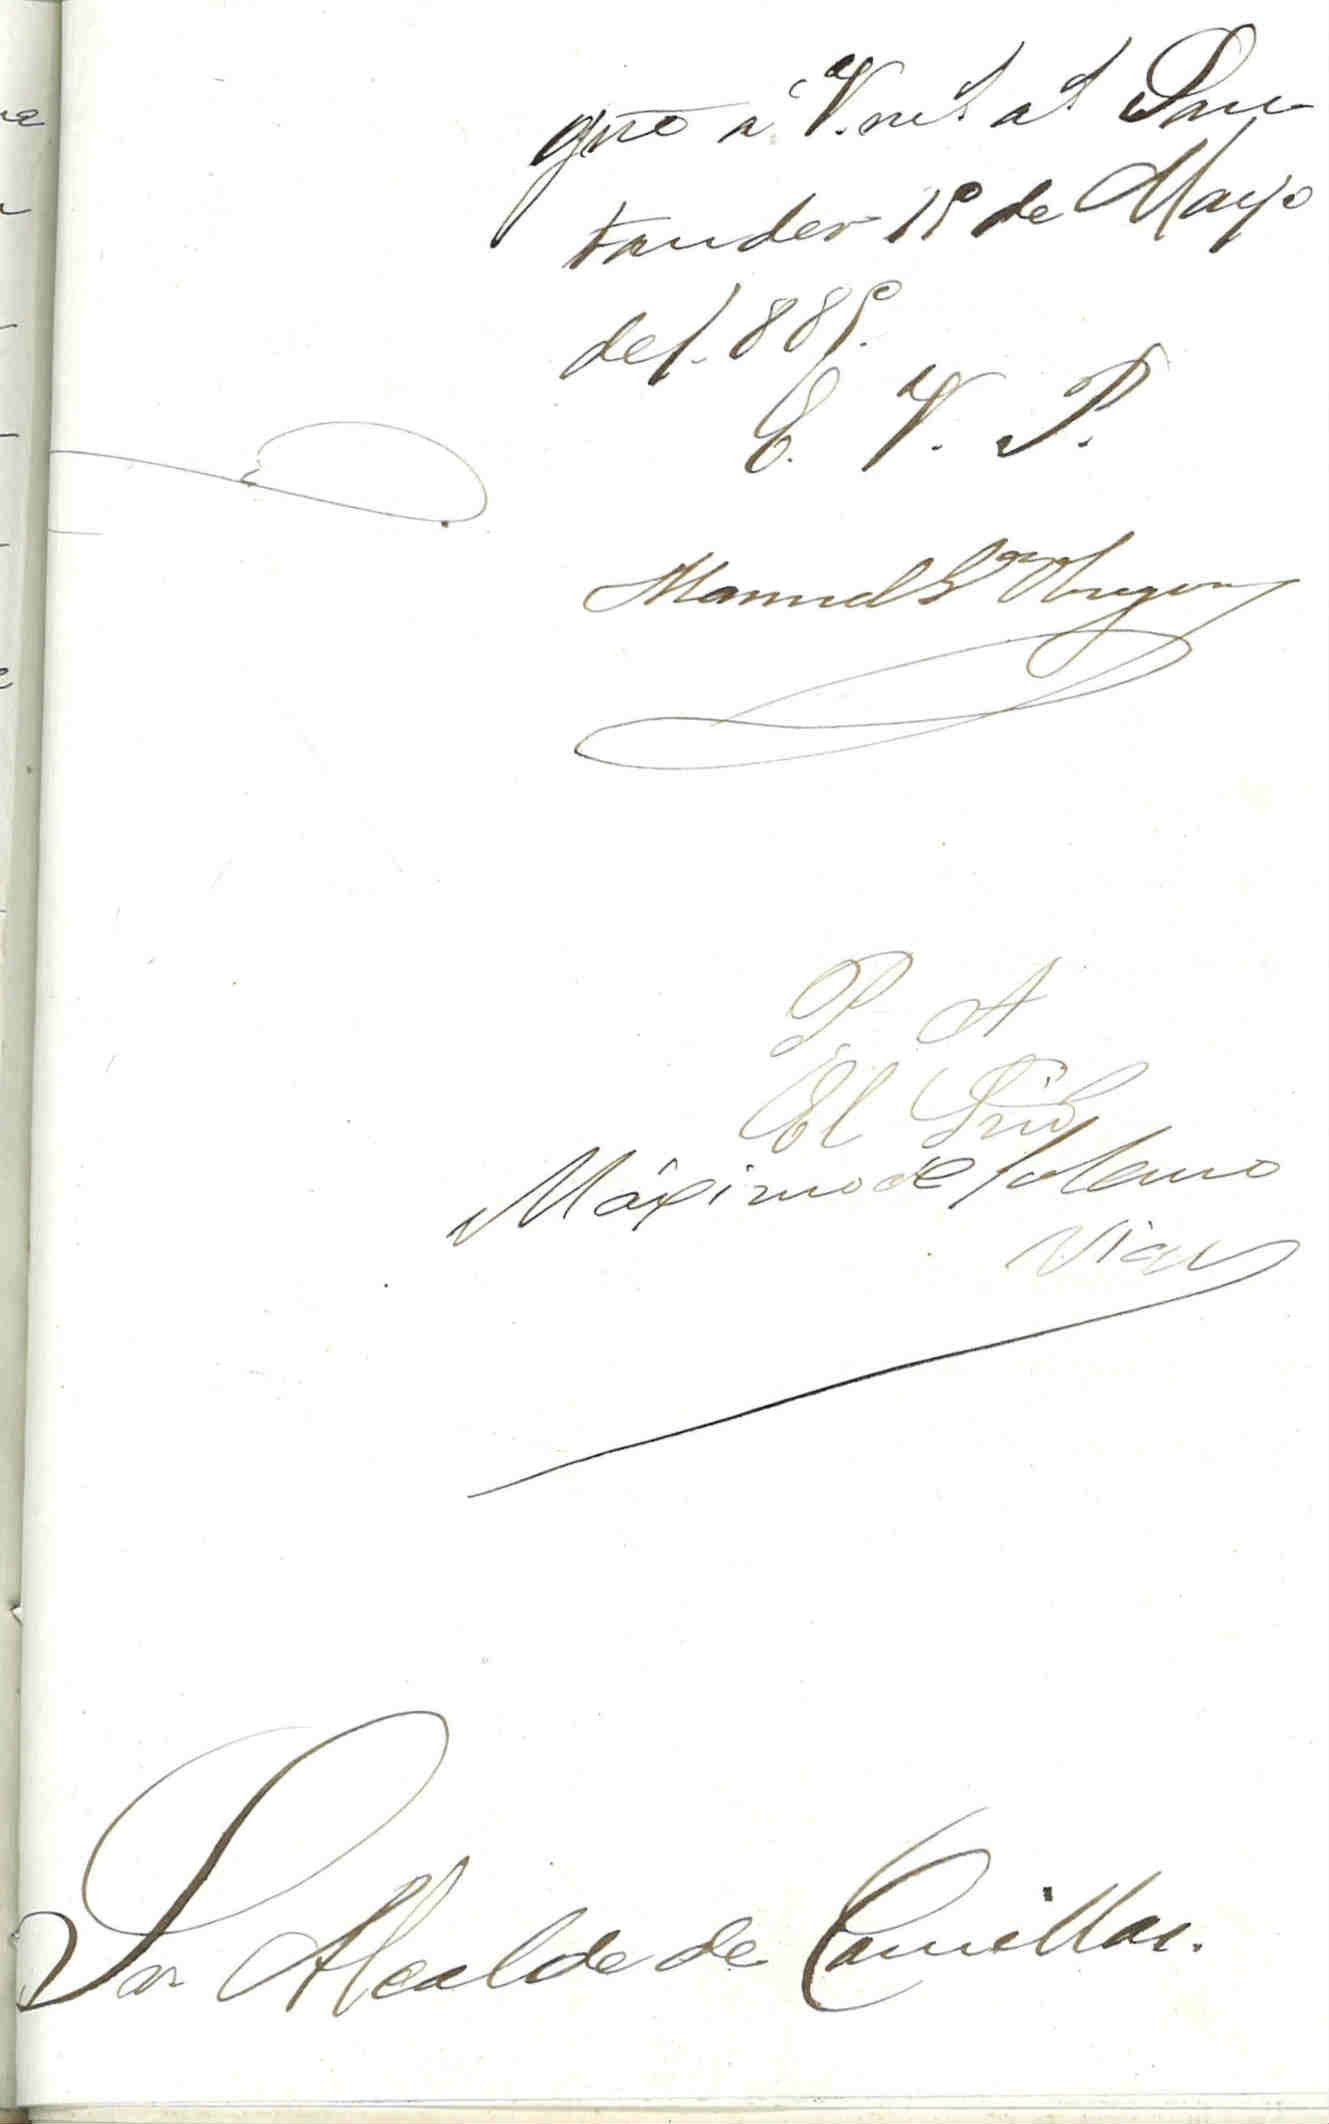 gue á V. m.s a.s San
tander 19 de Mayo
de 1.889.
E. V. P.
Manuel
P. A
El Srio
Máximo de Solano
Vial
Sor Alcalde de Comillas.